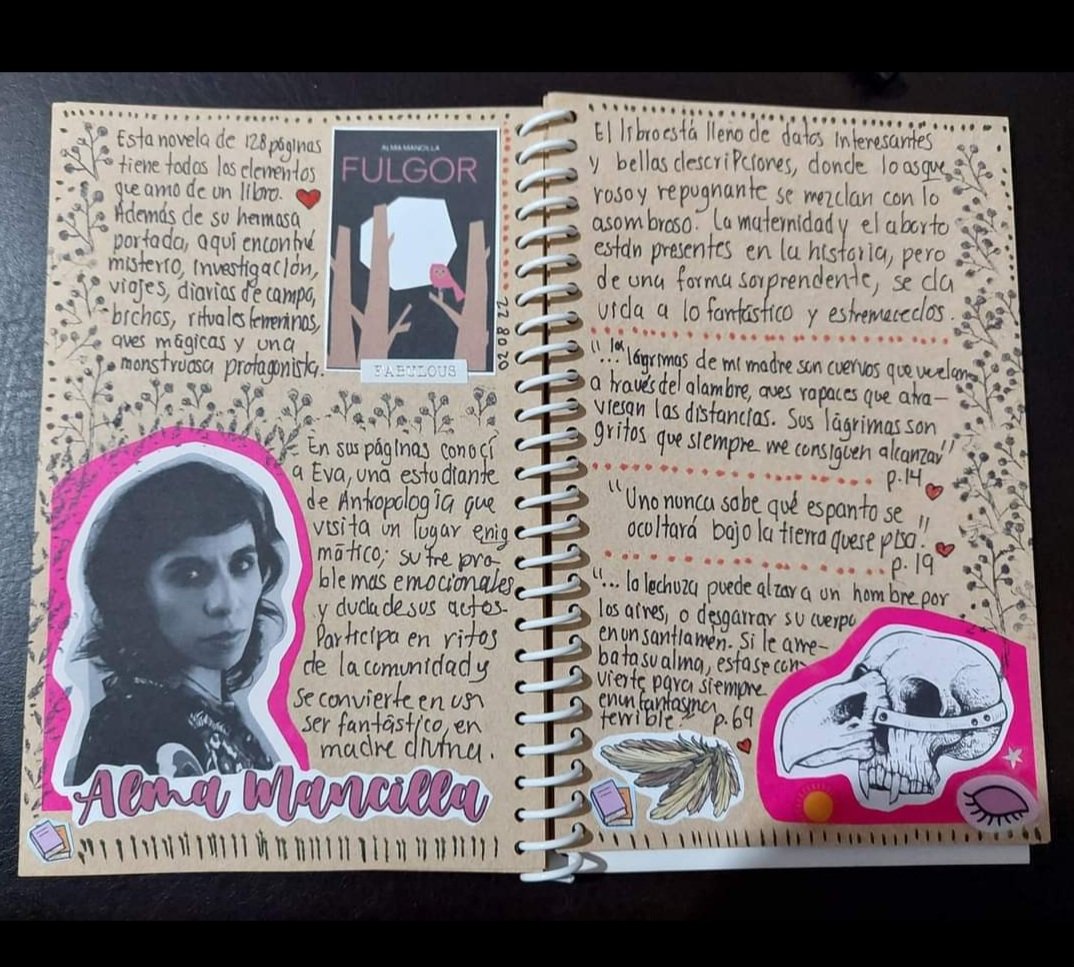 Esta novela de 128 páginas
tiene todos los elementos
que amo de un libro.
Además de su hermosa
portada, aquí encontré
misterio, investigación,
viajes, diarios de campo,
bichos, rituales femeninos,
aves mágicas y una
monstruosa protagonista.
ALMA MANCILLA
FULGOR
FABULOUS
22 80 20
En sus páginas conocí
a Eva, una estudiante
de Antropología que
visita un lugar enig
mático; sufre pro-
blemas emocionales
y duda de sus actos.
Participa en ritos
de la comunidad y
se convierte en un
ser fantástico, en
madre divina.
Alma Mancilla
El libro está lleno de datos interesantes
y bellas descripciones, donde lo asque
roso y repugnante se mezclan con lo
asombroso. La maternidad y el aborto
están presentes en la historia, pero
de una forma sorprendente, se da
vida a lo fantástico y estremecedos.
"...las lágrimas de mi madre son cuervos que vuelan
a través del alambre, aves rapaces que atra-
viesan las distancias. Sus lágrimas son
gritos que siempre me consiguen alcanzar"
p.14
"Uno nunca sabe qué espanto se
ocultará bajo la tierra que se pisa."
p.19
"... la lechuza puede alzar a un hombre por
los aires, o desgarrar su cuerpo
en un santiamén. Si le arre-
bata su alma, esta se con-
vierte para siempre
en un fantasma
terrible" p.69